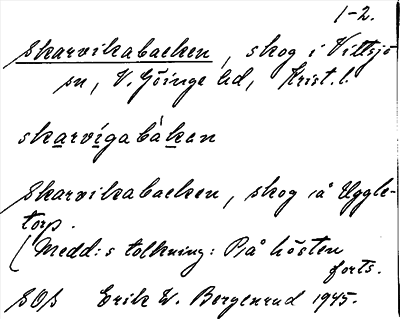 1-2.
Skarvikabacken, skog i Vittsjö
sn, V. Göinge hd, Krist. l.
skarvígabàkan
Skarvikabacken, skog på Uggle-
torp.
(Medd:s tolkning: På hösten
forts.
SOS Erik W. Bergenrud 1945.